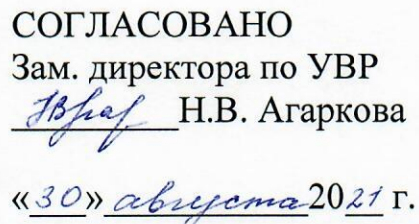 СОГЛАСОВАНО
Зам. директора по УВР
Н.В. Агаркова
«30» августа 2021 г.